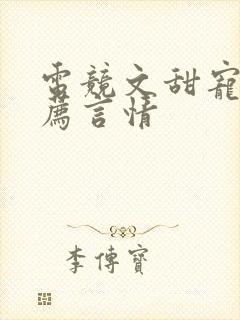 電競文甜寵
薦言情
李傳寶